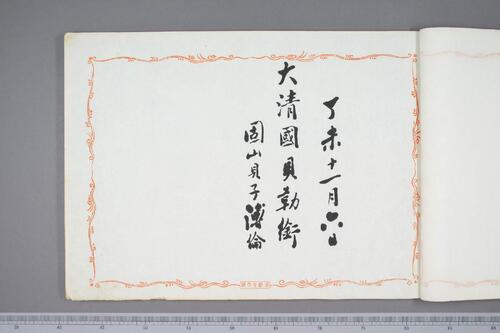 丁未十一月六日
大清國貝勒銜
固山貝子溥倫